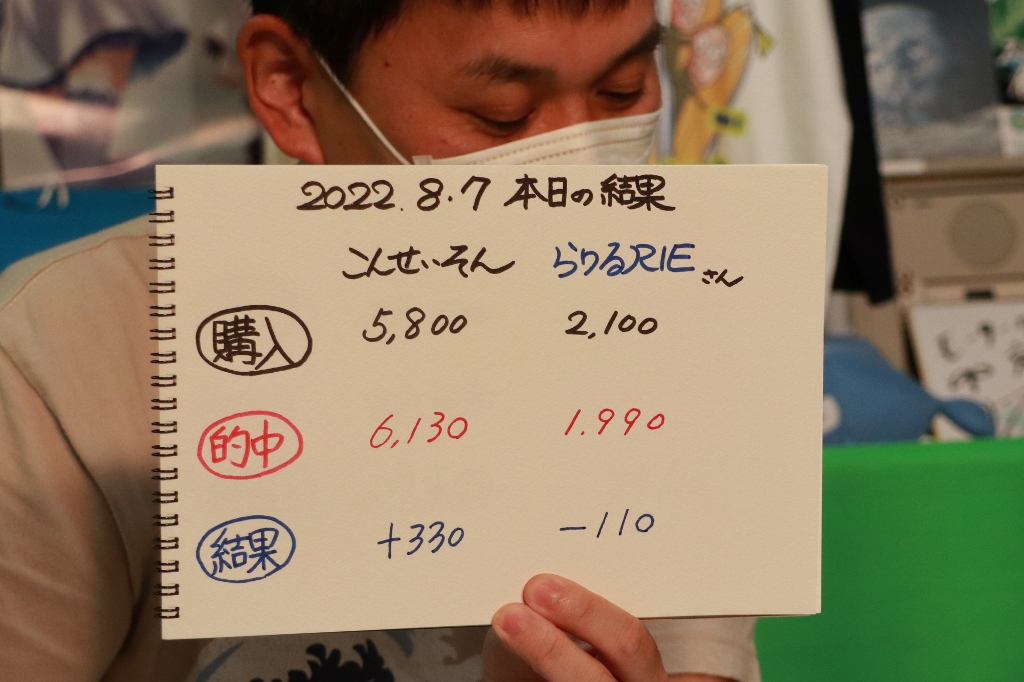 2022.8.7 本日の結果
こんせいそん らりるRIEさん
購入 5,800 2,100
的中 6,130 1.990
結果 +330 -110